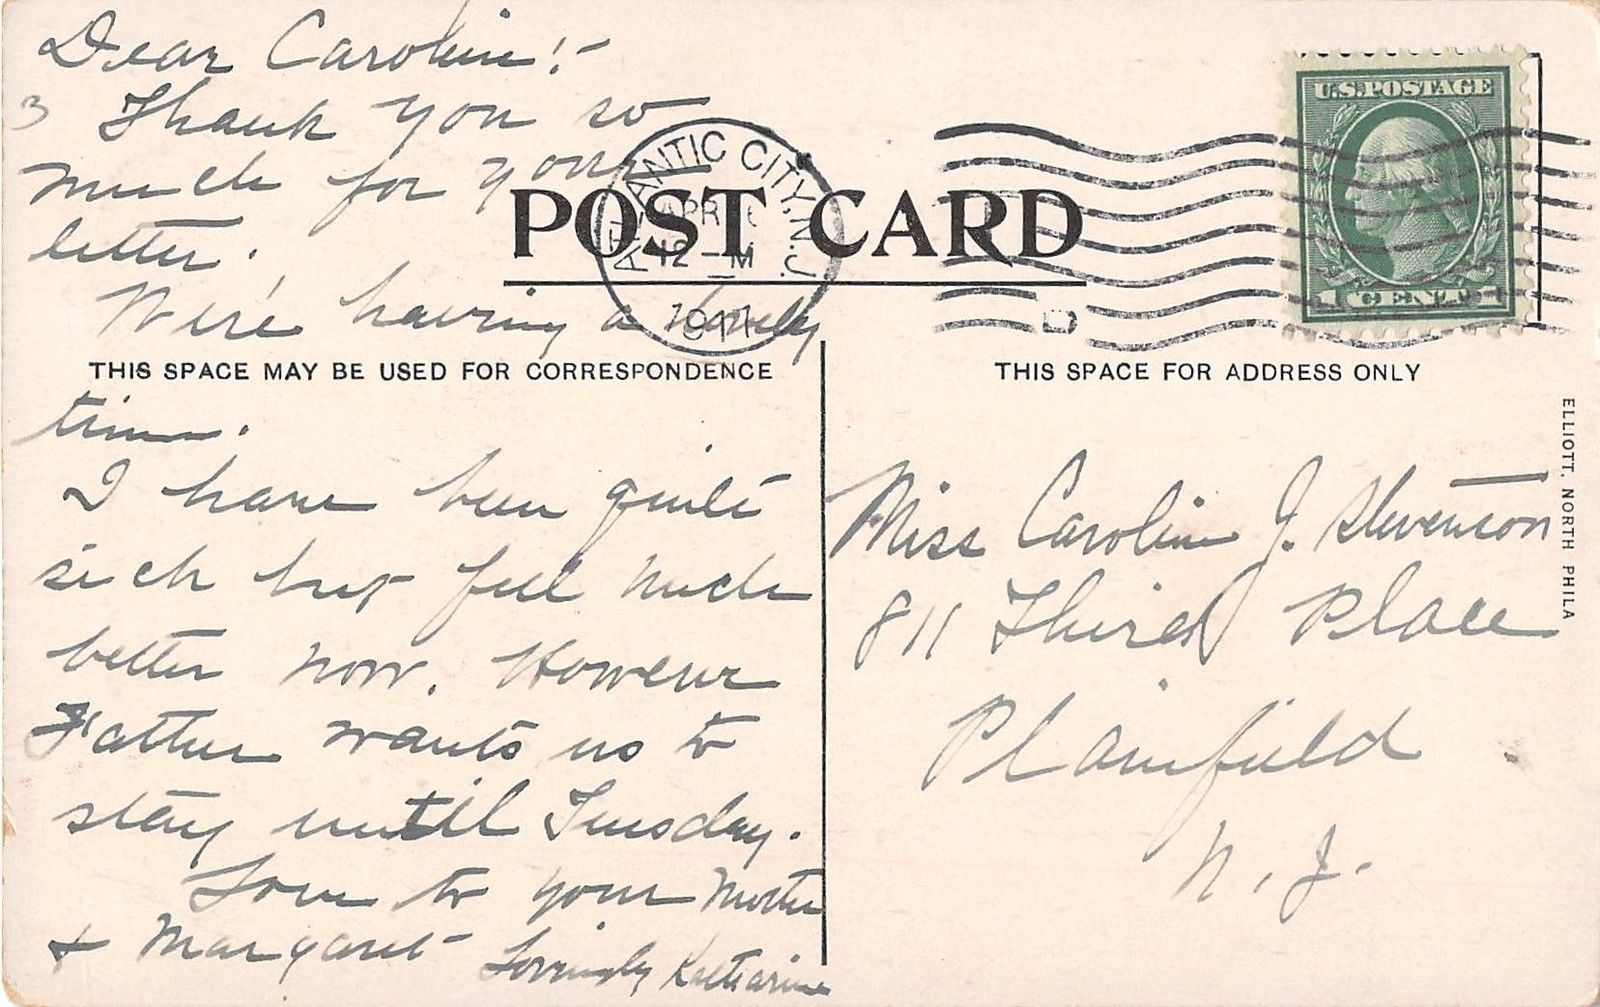 Dear Caroline!-
3 Thank you so
much for your
letter.
We're having a lovely
time.
I have been quite
sick but feel much
better now. However
Father wants us to
stay until Tuesday.
Love to your Mother
& Margaret Lovingly Katharine
POST CARD
ATLANTIC CITY, N.J.
APR
12 - M
191
U.S. POSTAGE
1 CENT 1
THIS SPACE MAY BE USED FOR CORRESPONDENCE
THIS SPACE FOR ADDRESS ONLY
Miss Caroline J. Stevenson
811 Third Place
Plainfield
N. J.
ELLIOTT, NORTH PHILA